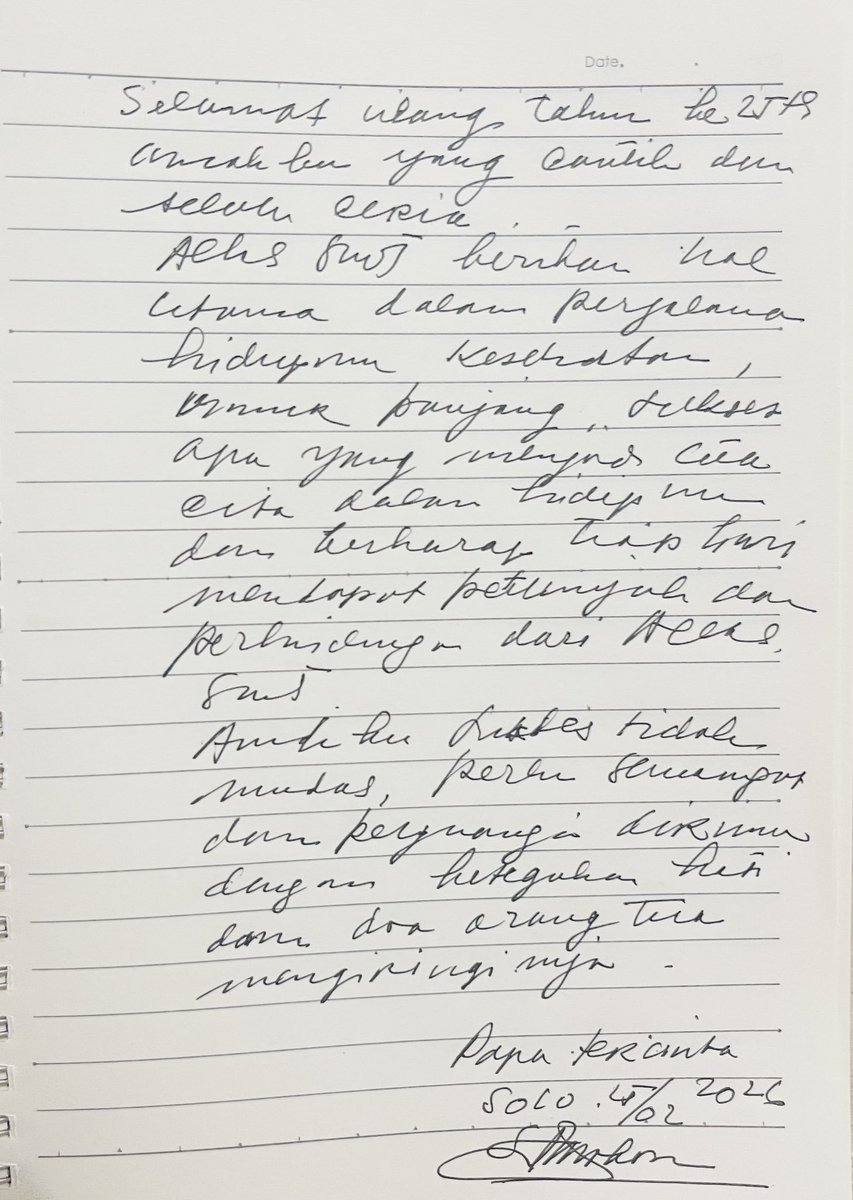 Date.
Selamat ulang tahun ke 25 th
anakku yang cantik dan
selalu ceria.
Allah SWT berikan hal
utama dalam perjalanan
hidupmu kesehatan,
umur panjang, sukses
apa yang menjadi cita
cita dalam hidupmu
dan berharap tiap hari
mendapat petunjuk dan
perlindungan dari Allah.
SWT
Anakku sukses tidak
mudah, perlu semangat
dan perjuangan dirimu
dengan keteguhan hati
dan doa orang tua
mengiringinya -
Papa tercinta
SOLO. 25/02 2026